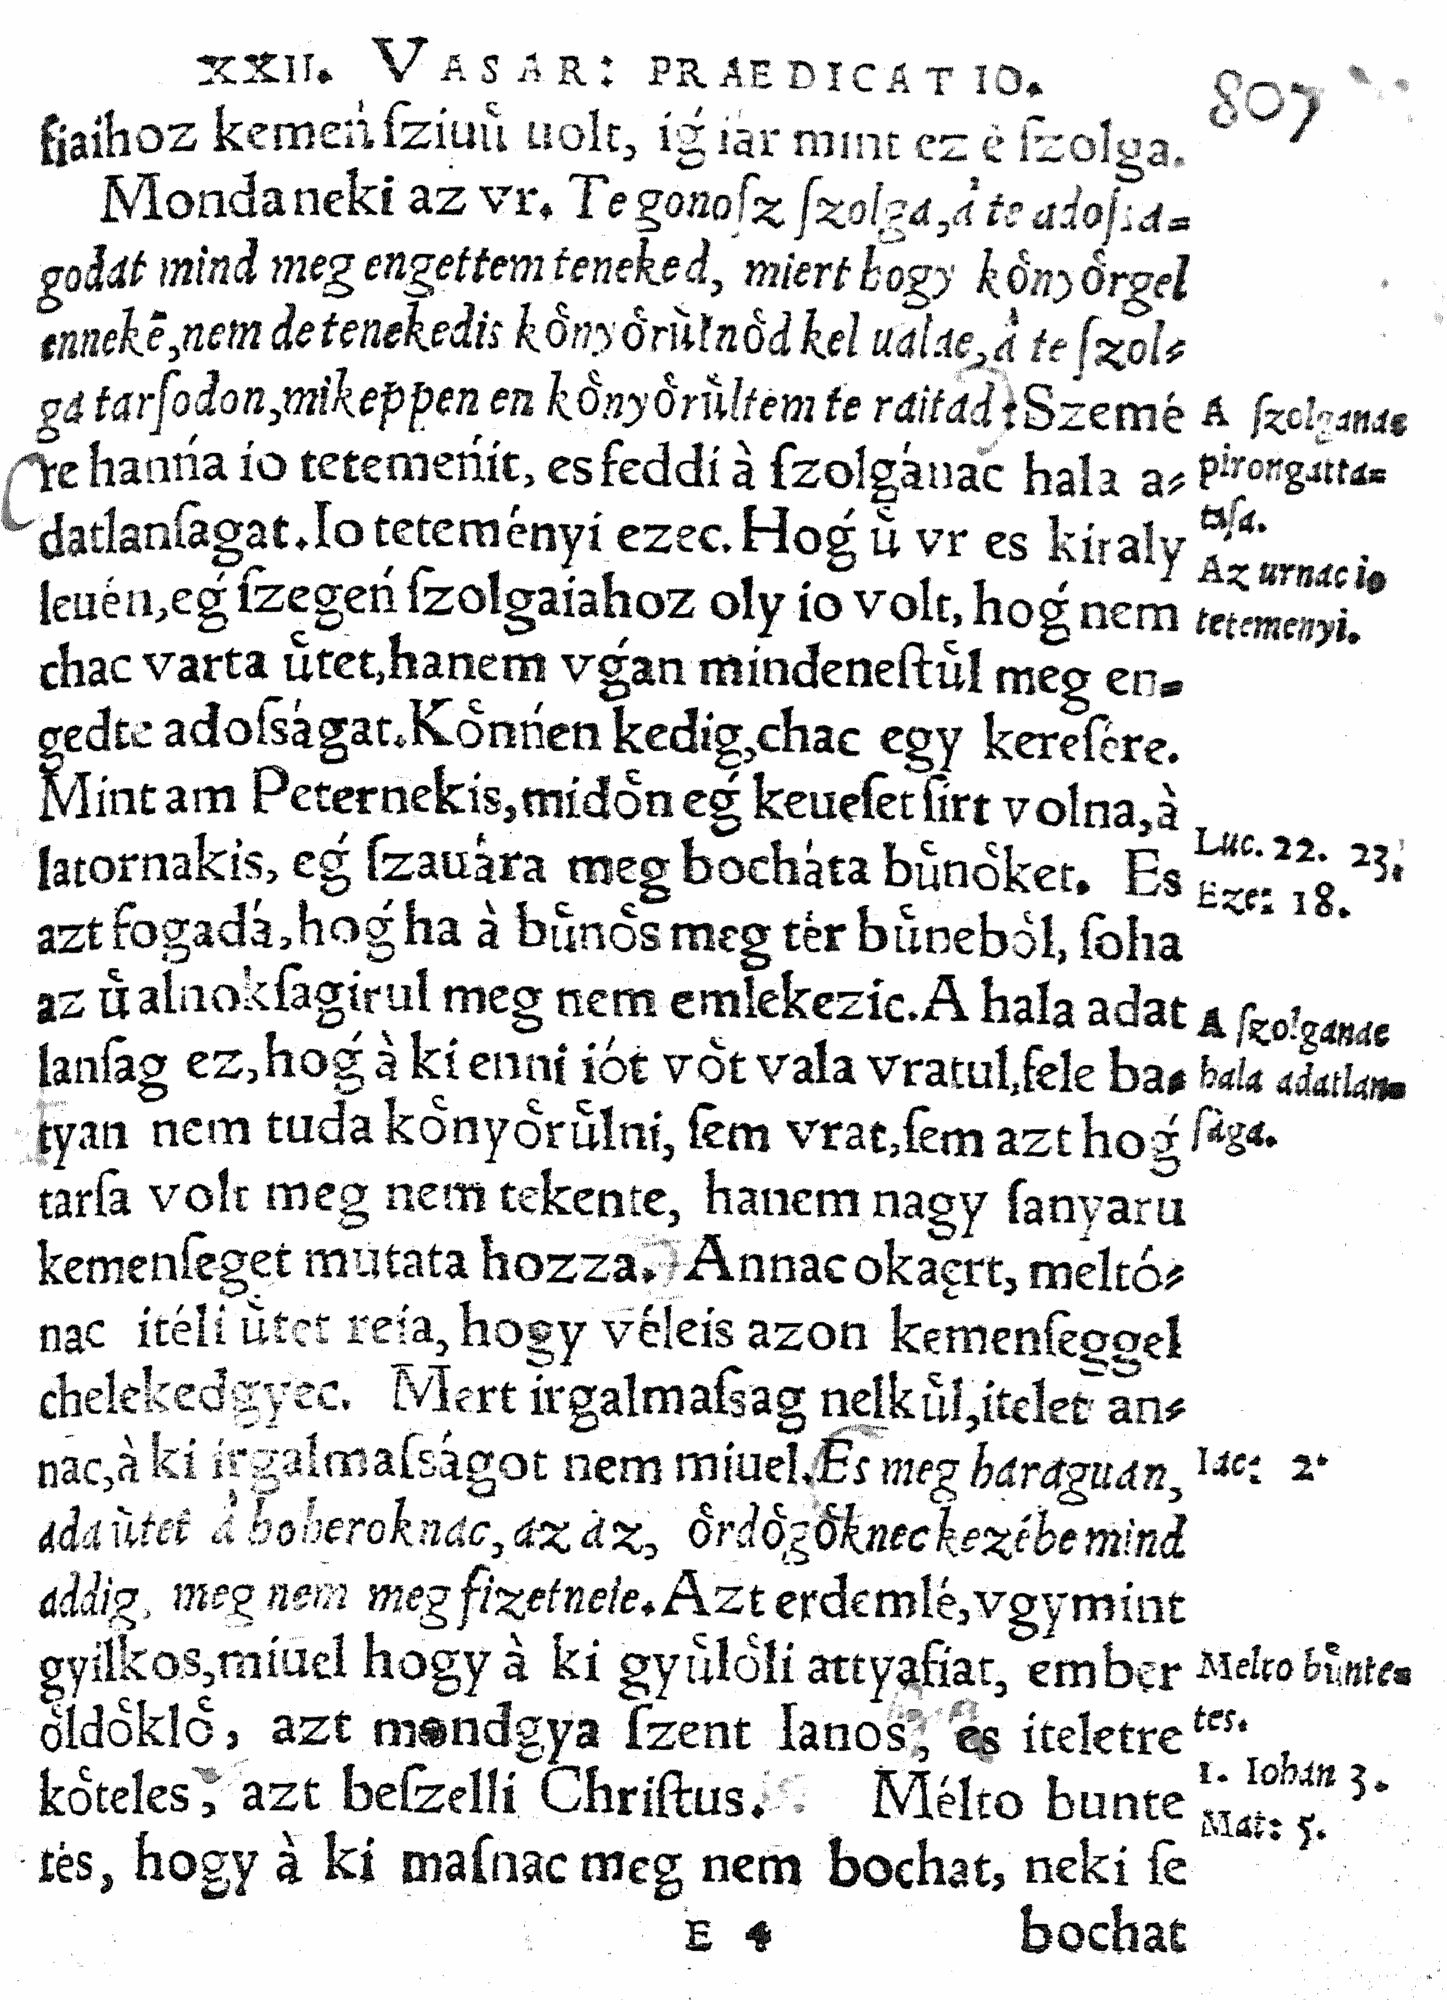 XXII. VASAR: PRAEDICATIO.
807
fiaihoz kemeń ſziuuͤ uolt, iǵ iár mint ez è ſzolga.
Monda neki az vr. Te gonoſz ſzolga, à te adoſsa=
godat mind meg engettem teneked, miert hogy koͤnyoͤrgel
ennekē, nem de tenekedis koͤnyoͤruͤlnoͤd kel ualae, à te ſzol=
ga tarſodon, mikeppen en koͤnyoͤruͤltem te raitad: Szemé
re hanńa io tetemeńit, es feddi à ſzolgánac hala a=
datlanſagat. Io teteményi ezec. Hoǵ uͤ vr es kiraly
leuén, eǵ ſzegeń ſzolgaiahoz oly io volt, hoǵ nem
chac varta uͤtet, hanem vǵan mindeneſtuͤl meg en=
gedte adoſságat. Koͤnńen kedig, chac egy kereſére.
Mint am Peternekis, midoͤn eǵ keueſet ſirt volna, à
latornakis, eǵ ſzauára meg bocháta buͤnoͤket. Es
azt fogadá, hoǵ ha à buͤnoͤs meg tér buͤneboͤl, ſoha
az uͤ alnokſagirul meg nem emlekezic. A hala adat
lanſag ez, hoǵ à ki enni iót voͤt vala vratul, fele ba=
tyan nem tuda koͤnyoͤruͤlni, ſem vrat, ſem azt hoǵ
tarſa volt meg nem tekente, hanem nagy ſanyaru
kemenſeget mutata hozza. Annac okaęrt, meltó=
nac itéli uͤtet reía, hogy véleis azon kemenſeggel
chelekedgyec. Mert irgalmaſsag nelkuͤl, itelet an=
nac, à ki irgalmaſságot nem miuel. Es meg haraguan,
ada uͤtet à hoheroknac, az az, oͤrdoͤgoͤknec kezébe mind
addig, meg nem meg fizetneie. Azt erdemlé, vgymint
gyilkos, miuel hogy à ki gyuͤloͤli attyafiat, ember
oͤldoͤkloͤ, azt mondgya ſzent Ianos, es iteletre
koͤteles, azt beſzelli Chriſtus. Mélto bunte
tés, hogy à ki maſnac meg nem bochat, neki ſe
E 4 bochat
A ſzolganac
pirongatta=
taſa.
Az urnac io
tetemenyi.
Luc. 22. 23.
Eze: 18.
A ſzolganac
hala adatlan=
ſága.
Iac: 2.
Melto buͤnte=
tes.
1. Iohan 3.
Mat: 5.